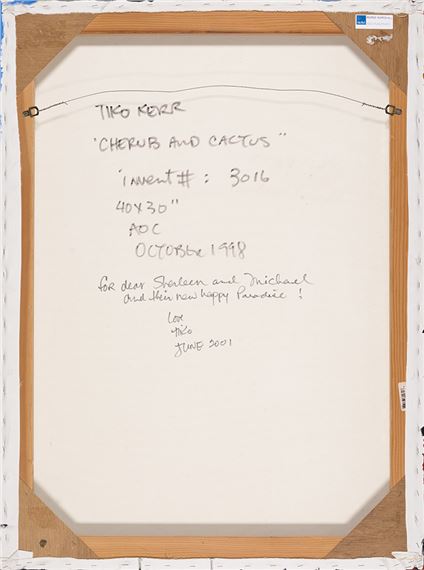 TIKO KERR
"CHERUB AND CACTUS"
invent #: 3016
40X30"
AOC
OCTOBER 1998
for dear Sharleen and Michael
and their new happy Paradise!
Love
Tiko
JUNE 2001